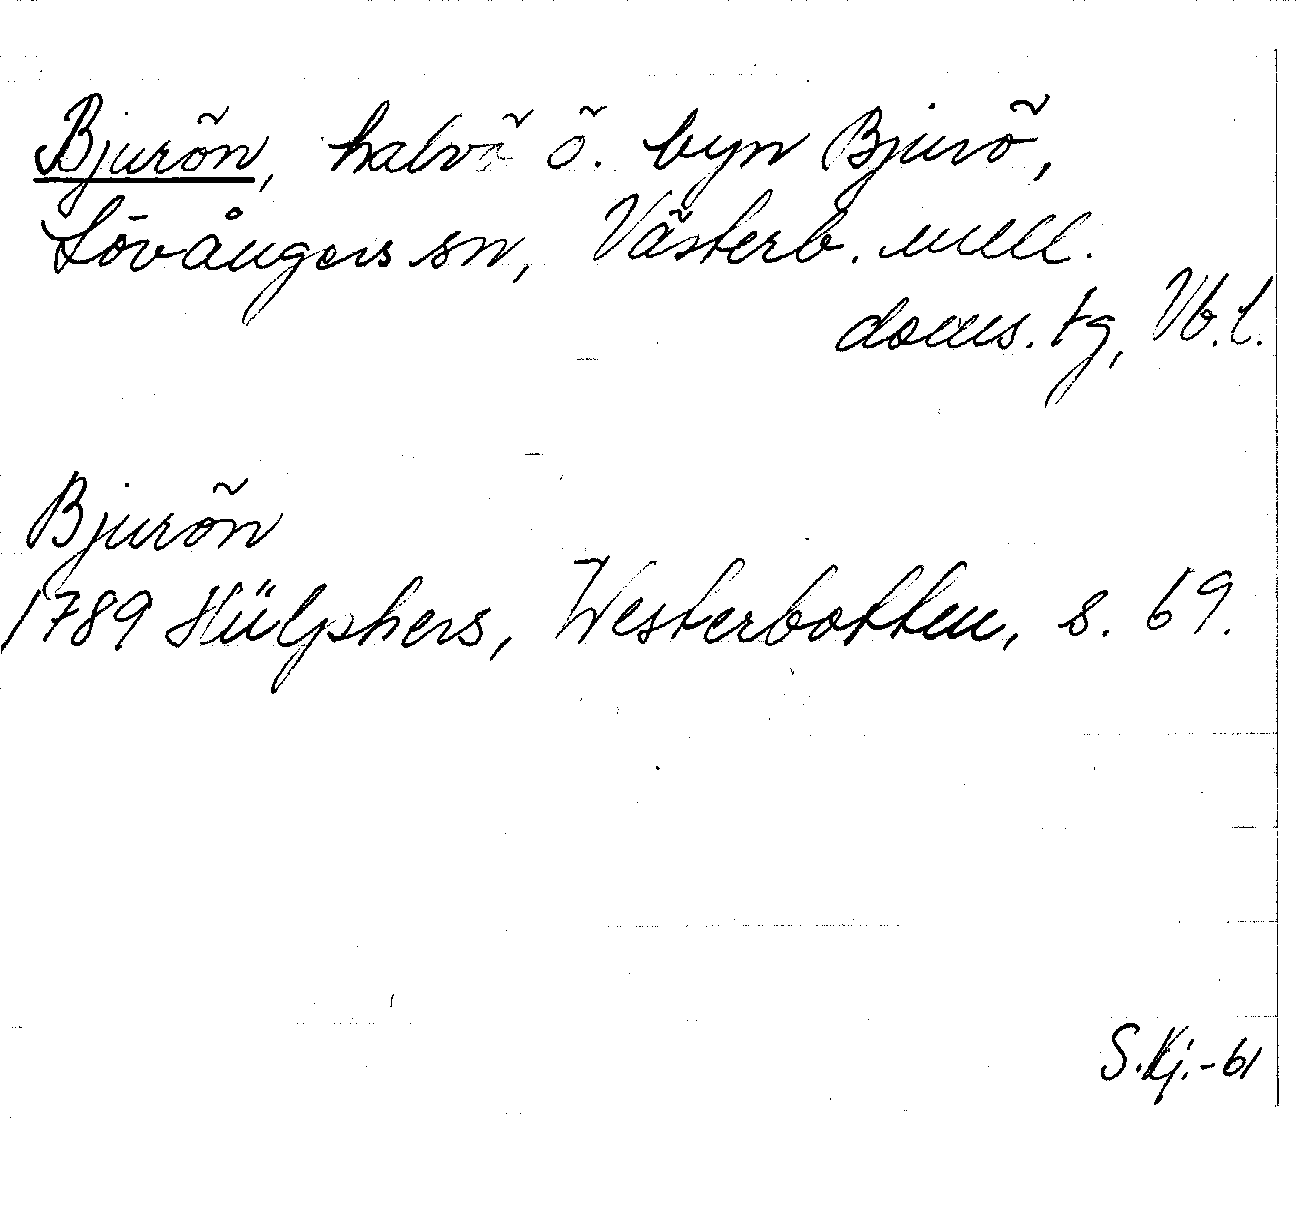 Bjurön, halvö ö. byn Bjurö,
Lövångers sn, Västerb. mell.
doms. tg, Vb. l.
Bjurön
1789 Hülphers, Westerbotten, s. 69.
S.Kj.-61